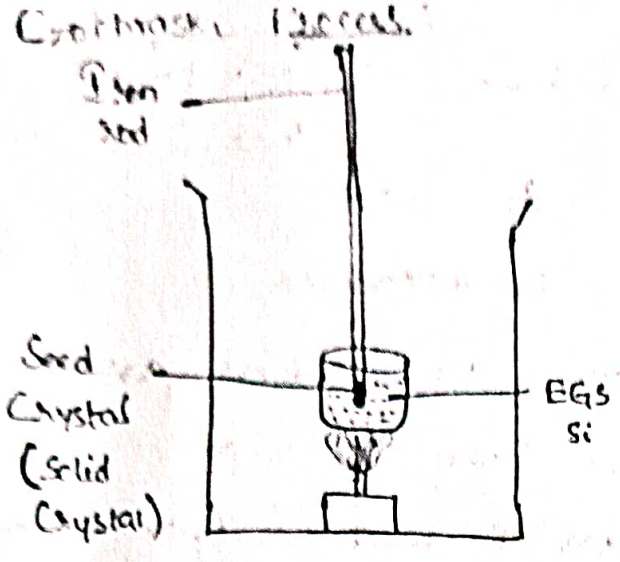 Czochraski Process.
Iron
rod
Seed
Crystal
(Solid
Crystal)
EGS
Si